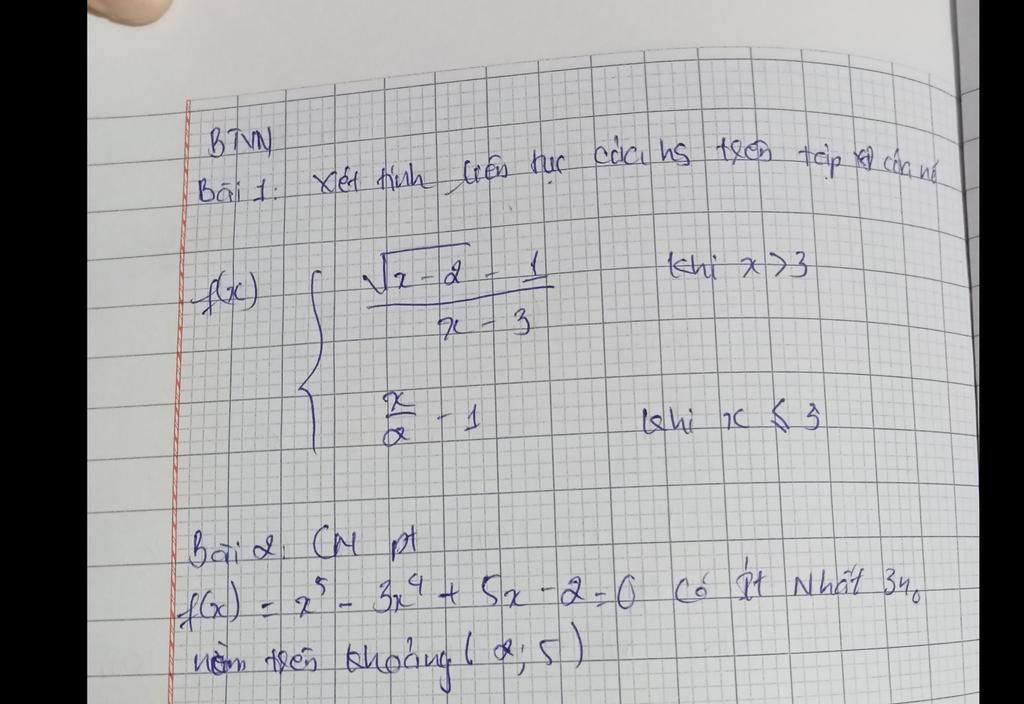 BTVN
Bài 1: xét tính liên tục của hs trên tập xđ của nó
f(x) { (√(x - 2) - 1) / (x - 3) khi x > 3
x/2 - 1 khi x ≤ 3
Bài 2. CM pt
f(x) = x⁵ - 3x⁴ + 5x - 2 = 0 Có ít Nhất 3 n₀
nằm trên khoảng (2; 5)